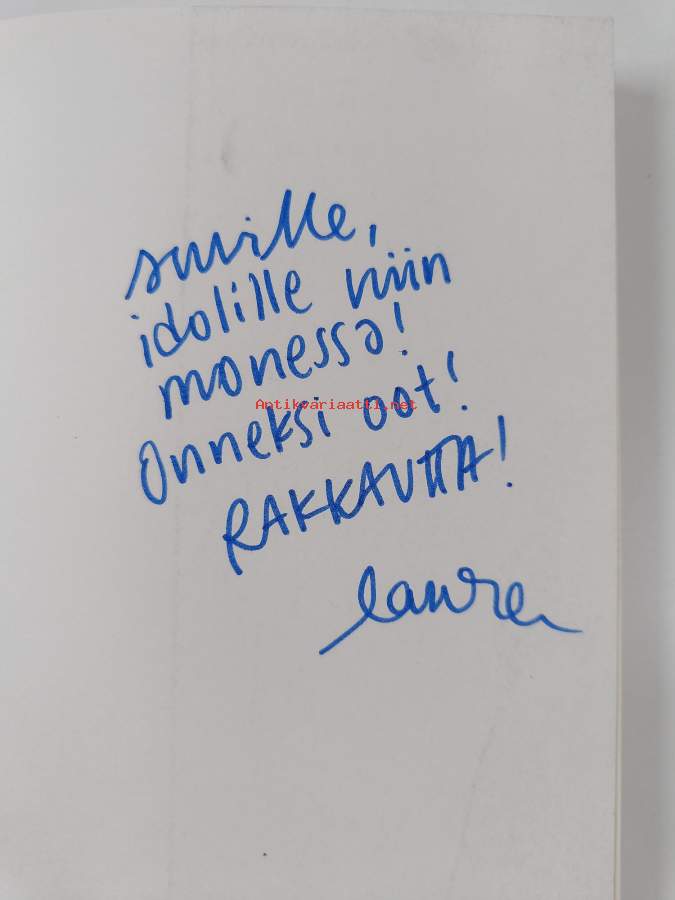 suville,
idolille niin
monessa!
Antikvariaatti.net
Onneksi oot!
RAKKAUTTA!
laura